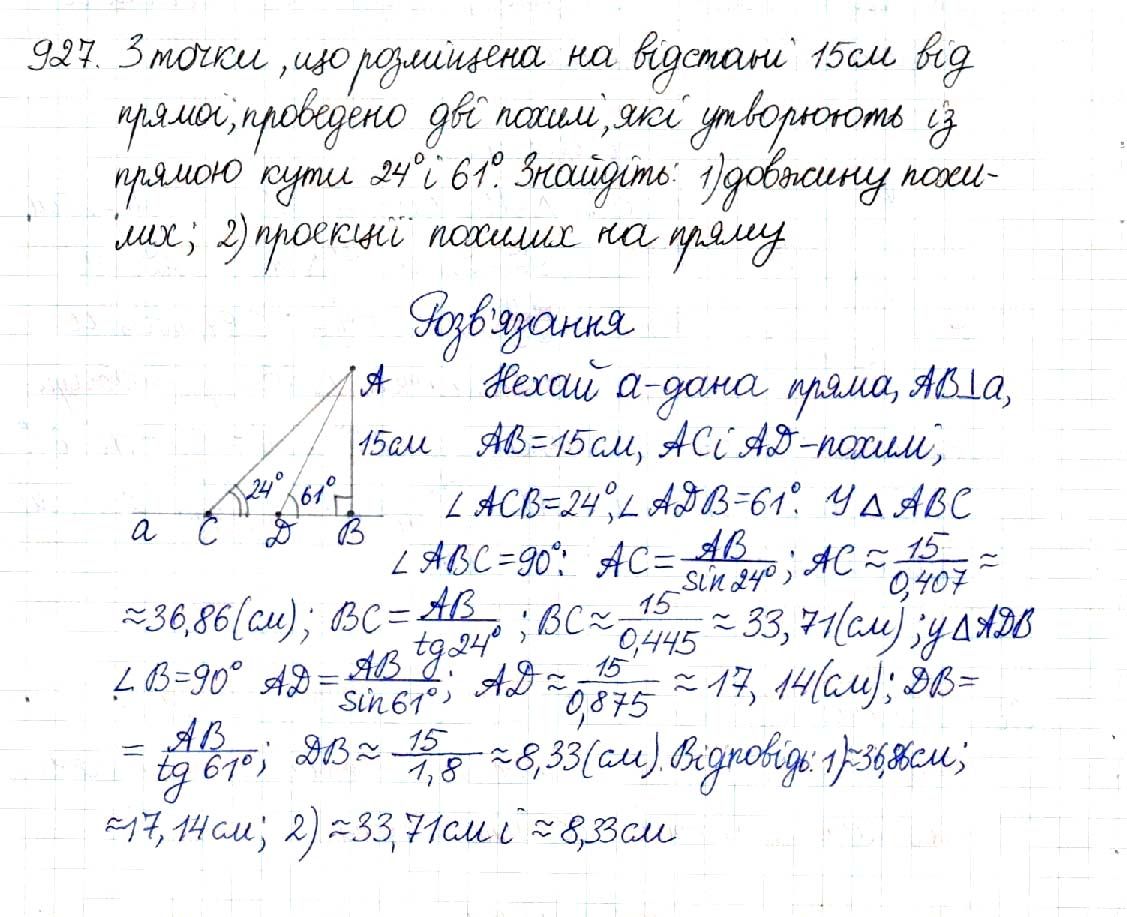 927. З точки, що розміщена на відстані 15см від
прямої, проведено дві похилі, які утворюють із
прямою кути 24° і 61°. Знайдіть: 1) довжину похи-
лих; 2) проекції похилих на пряму
Розв'язання
A
15см
24°
61°
a C D B
Нехай a-дана пряма, AB⊥a,
AB=15см, AC і AD-похилі,
∠ACB=24°, ∠ADB=61°. У △ ABC
∠ABC=90°: AC=AB/sin24°; AC≈15/0,407≈
≈36,86(см); BC=AB/tg24°; BC≈15/0,445≈33,71(см); у △ADB
∠B=90° AD=AB/sin61°; AD≈15/0,875≈17,14(см); DB=
=AB/tg 61°; DB≈15/1,8≈8,33(см). Відповідь: 1)≈36,86см;
≈17,14см; 2) ≈33,71см і ≈8,33см